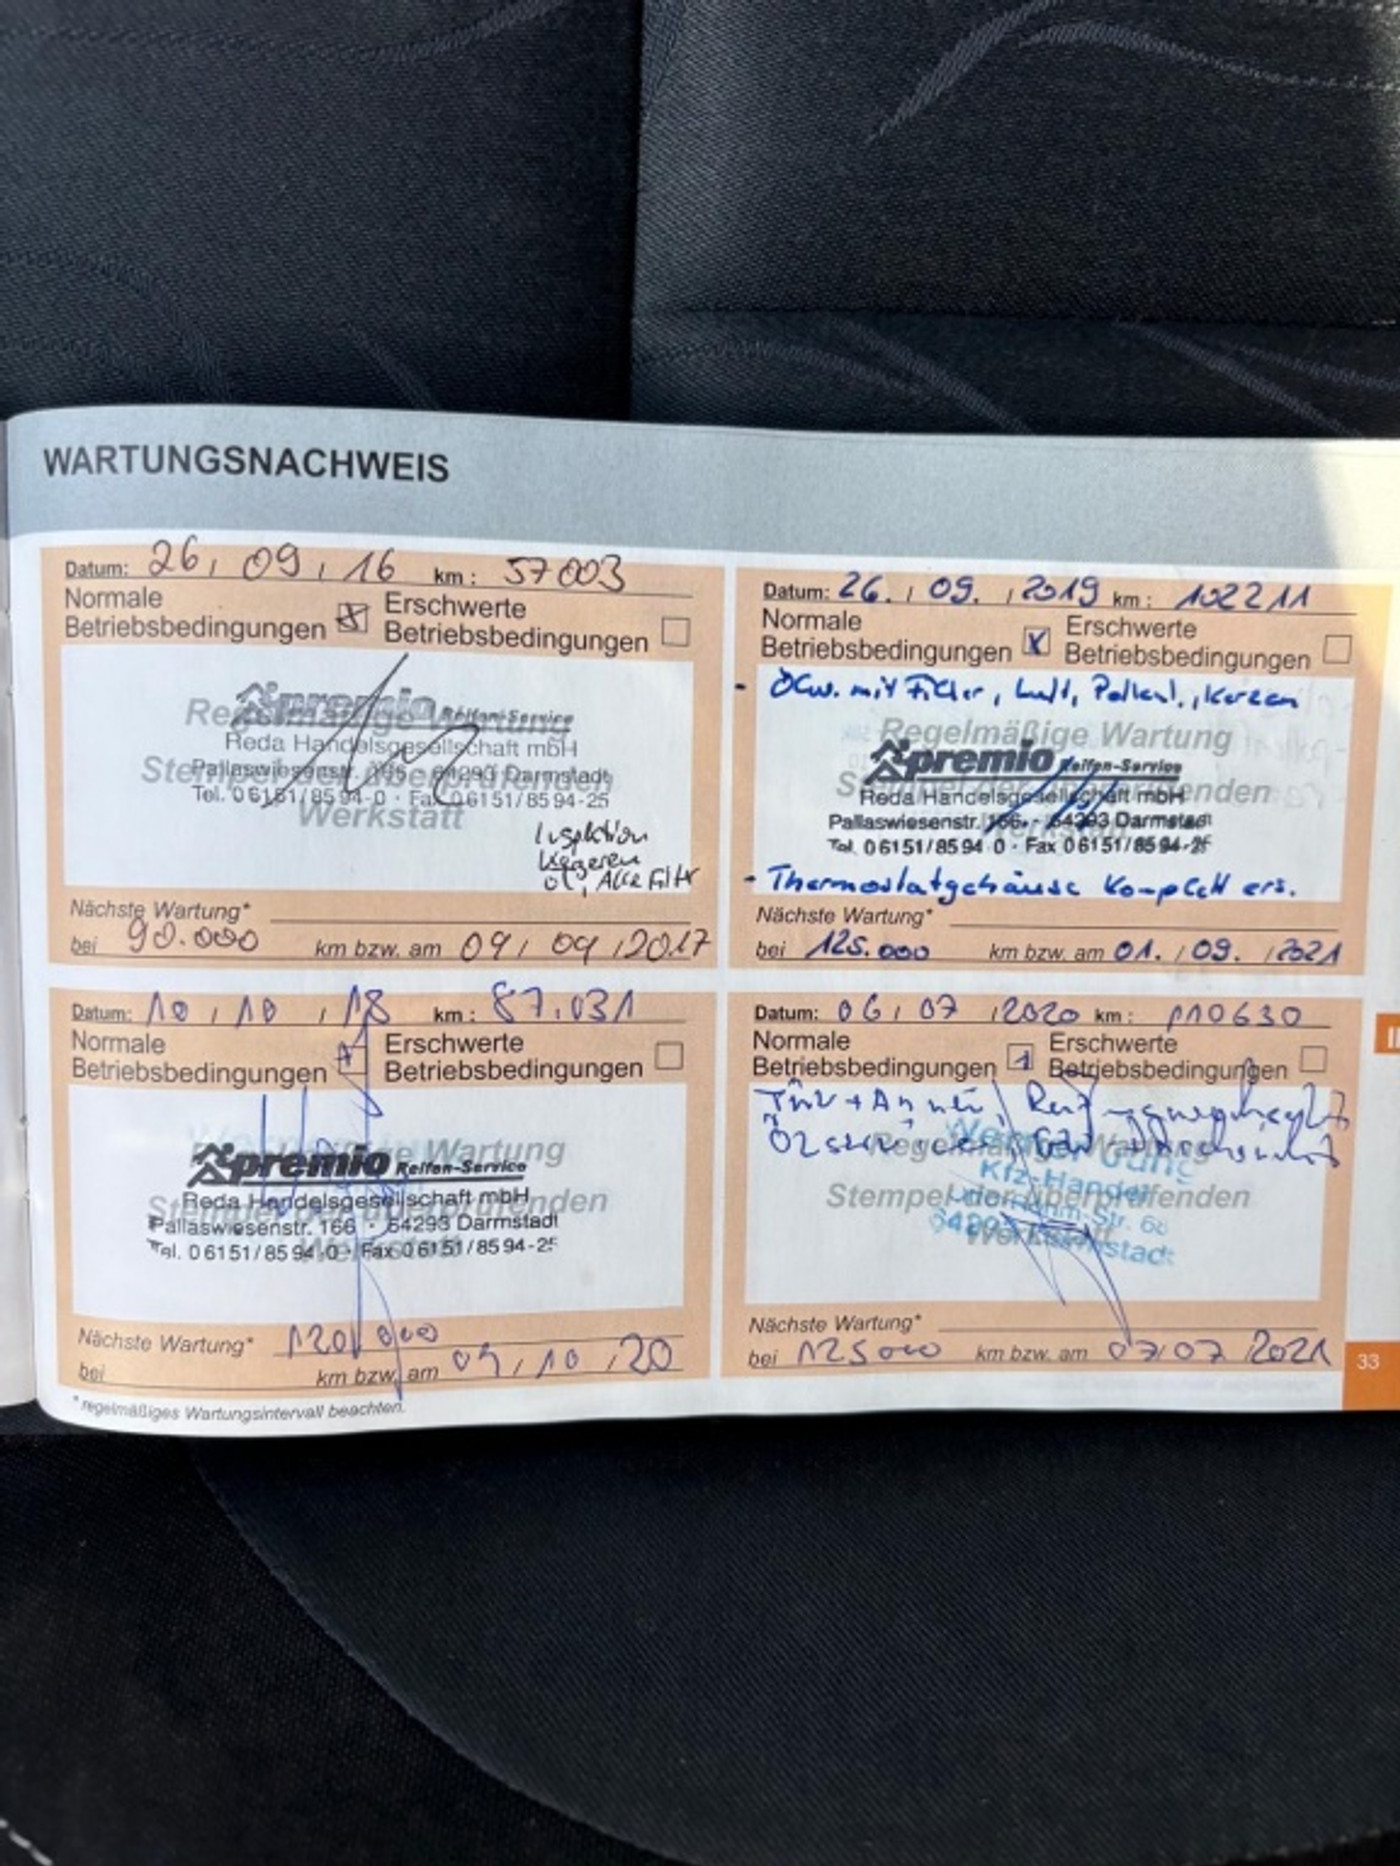 WARTUNGSNACHWEIS
Datum: 26 / 09 / 16 km: 57003
Normale Betriebsbedingungen Erschwerte Betriebsbedingungen
Regelmäßige Wartung
Stempel der überprüfenden
Werkstatt
premio Reifen-Service
Reda Handelsgesellschaft mbH
Pallaswiesenstr. 64293 Darmstadt
Tel. 06151/8594-0 · Fax 06151/8594-25
Inspektion
Öl, Alle Filter
Nächste Wartung*
bei 90.000 km bzw. am 09 / 09 / 2017
Datum: 10 / 10 / 18 km: 87.031
Normale Betriebsbedingungen Erschwerte Betriebsbedingungen
Wartung
Stempel der überprüfenden
Werkstatt
premio Reifen-Service
Reda Handelsgesellschaft mbH
Pallaswiesenstr. 166 · 64293 Darmstadt
Tel. 06151/8594-0 · Fax 06151/8594-25
Nächste Wartung* 120.000
bei km bzw. am 09 / 10 / 20
* regelmäßiges Wartungsintervall beachten.
Datum: 26. / 09. / 2019 km: 102211
Normale Betriebsbedingungen Erschwerte Betriebsbedingungen
- Ölw. mit Filter, Luft, Pollenf., Kerzen
Regelmäßige Wartung
Stempel der überprüfenden
Werkstatt
premio Reifen-Service
Reda Handelsgesellschaft mbH
Pallaswiesenstr. 166 · 64293 Darmstadt
Tel. 06151/8594-0 · Fax 06151/8594-25
- Thermostatgehäuse komplett ers.
Nächste Wartung*
bei 125.000 km bzw. am 01. / 09. / 2021
Datum: 06 / 07 / 2020 km: 110630
Normale Betriebsbedingungen Erschwerte Betriebsbedingungen
TÜV + Au neu,
Regelmäßige Wartung
Kfz-Handel
Stempel der überprüfenden
Werkstatt
Nächste Wartung*
bei 125000 km bzw. am 07/07 2021
33